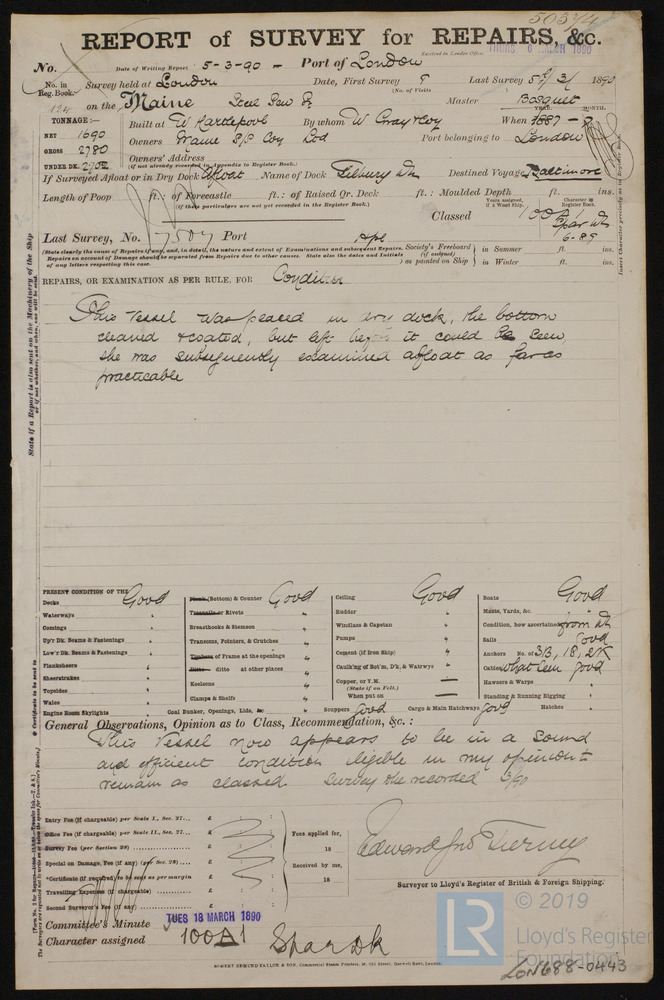 50374
REPORT of SURVEY for REPAIRS, &c.
THURS 6 MARCH 1890
No. Date of Writing Report 5-3-90 - Port of London
No. in Reg. Book. Survey held at London Date, First Survey (No. of Visits Last Survey 5th/3/ 1890
124 on the Maine Steel Scw Sr Master Bocquet
TONNAGE:— Built at W Hartlepool By whom W Gray & Coy When 1887 - YEAR. MONTH.
NET 1690
GROSS 2780 Owners Maine S/S Coy Ltd Port belonging to London
UNDER DK. Owners' Address (if not already recorded in Appendix to Register Book.)
If Surveyed Afloat or in Dry Dock Afloat Name of Dock Tilbury Dk Destined Voyage Baltimore
Length of Poop ft.: of Forecastle ft.: of Raised Qr. Deck ft.: Moulded Depth ft. ins.
(If these particulars are not yet recorded in the Register Book.)
Years assigned, If a Wood Ship. Character in Register Book.
Classed 100A1
Spar Dk
6-89
Last Survey, No. 7507 Port Hpl
(State clearly the cause of Repairs if any, and, in detail, the nature and extent of Examinations and subsequent Repairs.
Repairs on account of Damage should be separated from Repairs due to other causes. State also the dates and Initials
of any letters respecting this case.
Society's Freeboard (if assigned) as painted on Ship in Summer ft. ins.
in Winter ft. ins.
REPAIRS, OR EXAMINATION AS PER RULE, FOR Condition
This Vessel was placed in dry dock, the bottom
cleaned & coated, but left before it could be seen,
she was subsequently examined afloat as far as
practicable
State if a Report is also sent on the Machinery of the Ship
Insert Character precisely as in Register Book.
PRESENT CONDITION OF THE
Decks Good
Waterways "
Comings "
Up'r Dk. Beams & Fastenings "
Low'r Dk. Beams & Fastenings "
Planksheers "
Sheerstrakes "
Topsides "
Wales "
Engine Room Skylights "
Plank (Bottom) & Counter Good
Treenails or Rivets "
Breasthooks & Stemson "
Transoms, Pointers, & Crutches "
Timbers of Frame at the openings "
Ditto ditto at other places "
Keelsons "
Clamps & Shelfs "
Coal Bunker, Openings, Lids, &c. "
Ceiling Good
Rudder "
Windlass & Capstan "
Pumps "
Cement (if Iron Ship) "
Caulking of Bot'm, D'k, & Waterwys "
Copper, or Y.M. (State if on Felt.) —
When put on —
Scuppers Good Cargo & Main Hatchways Good
Boats Good
Masts, Yards, &c. "
Condition, how ascertained from Dk
Sails Good
Anchors No. of 3B, 1S, 2K
Cables what seen good
Hawsers & Warps "
Standing & Running Rigging "
Hatches "
General Observations, Opinion as to Class, Recommendation, &c. :
This Vessel now appears to be in a sound
and efficient condition eligible in my opinion to
remain as classed. Survey the recorded 3/90
Entry Fee (if chargeable) per Scale I., Sec. 27... £ : :
Office Fee (if chargeable) per Scale II., Sec. 27... £ : :
Survey Fee (per Section 28) £ : :
Special on Damage, Fee (if any) (per Sec. 28) £ : :
*Certificate (if required) to be sent as per margin £ : :
Travelling Expenses (if chargeable) £ : :
Second Surveyor's Fee (if any) £ : :
Fees applied for,
18
Received by me,
18
Edward Jno Tierney
Surveyor to Lloyd's Register of British & Foreign Shipping.
Committee's Minute TUES 18 MARCH 1890
Character assigned 100A1 Spar Dk
ROBERT EDMUND TAYLOR & SON,
© 2019
LR
Lloyd's Register
Foundation
LON688-0443